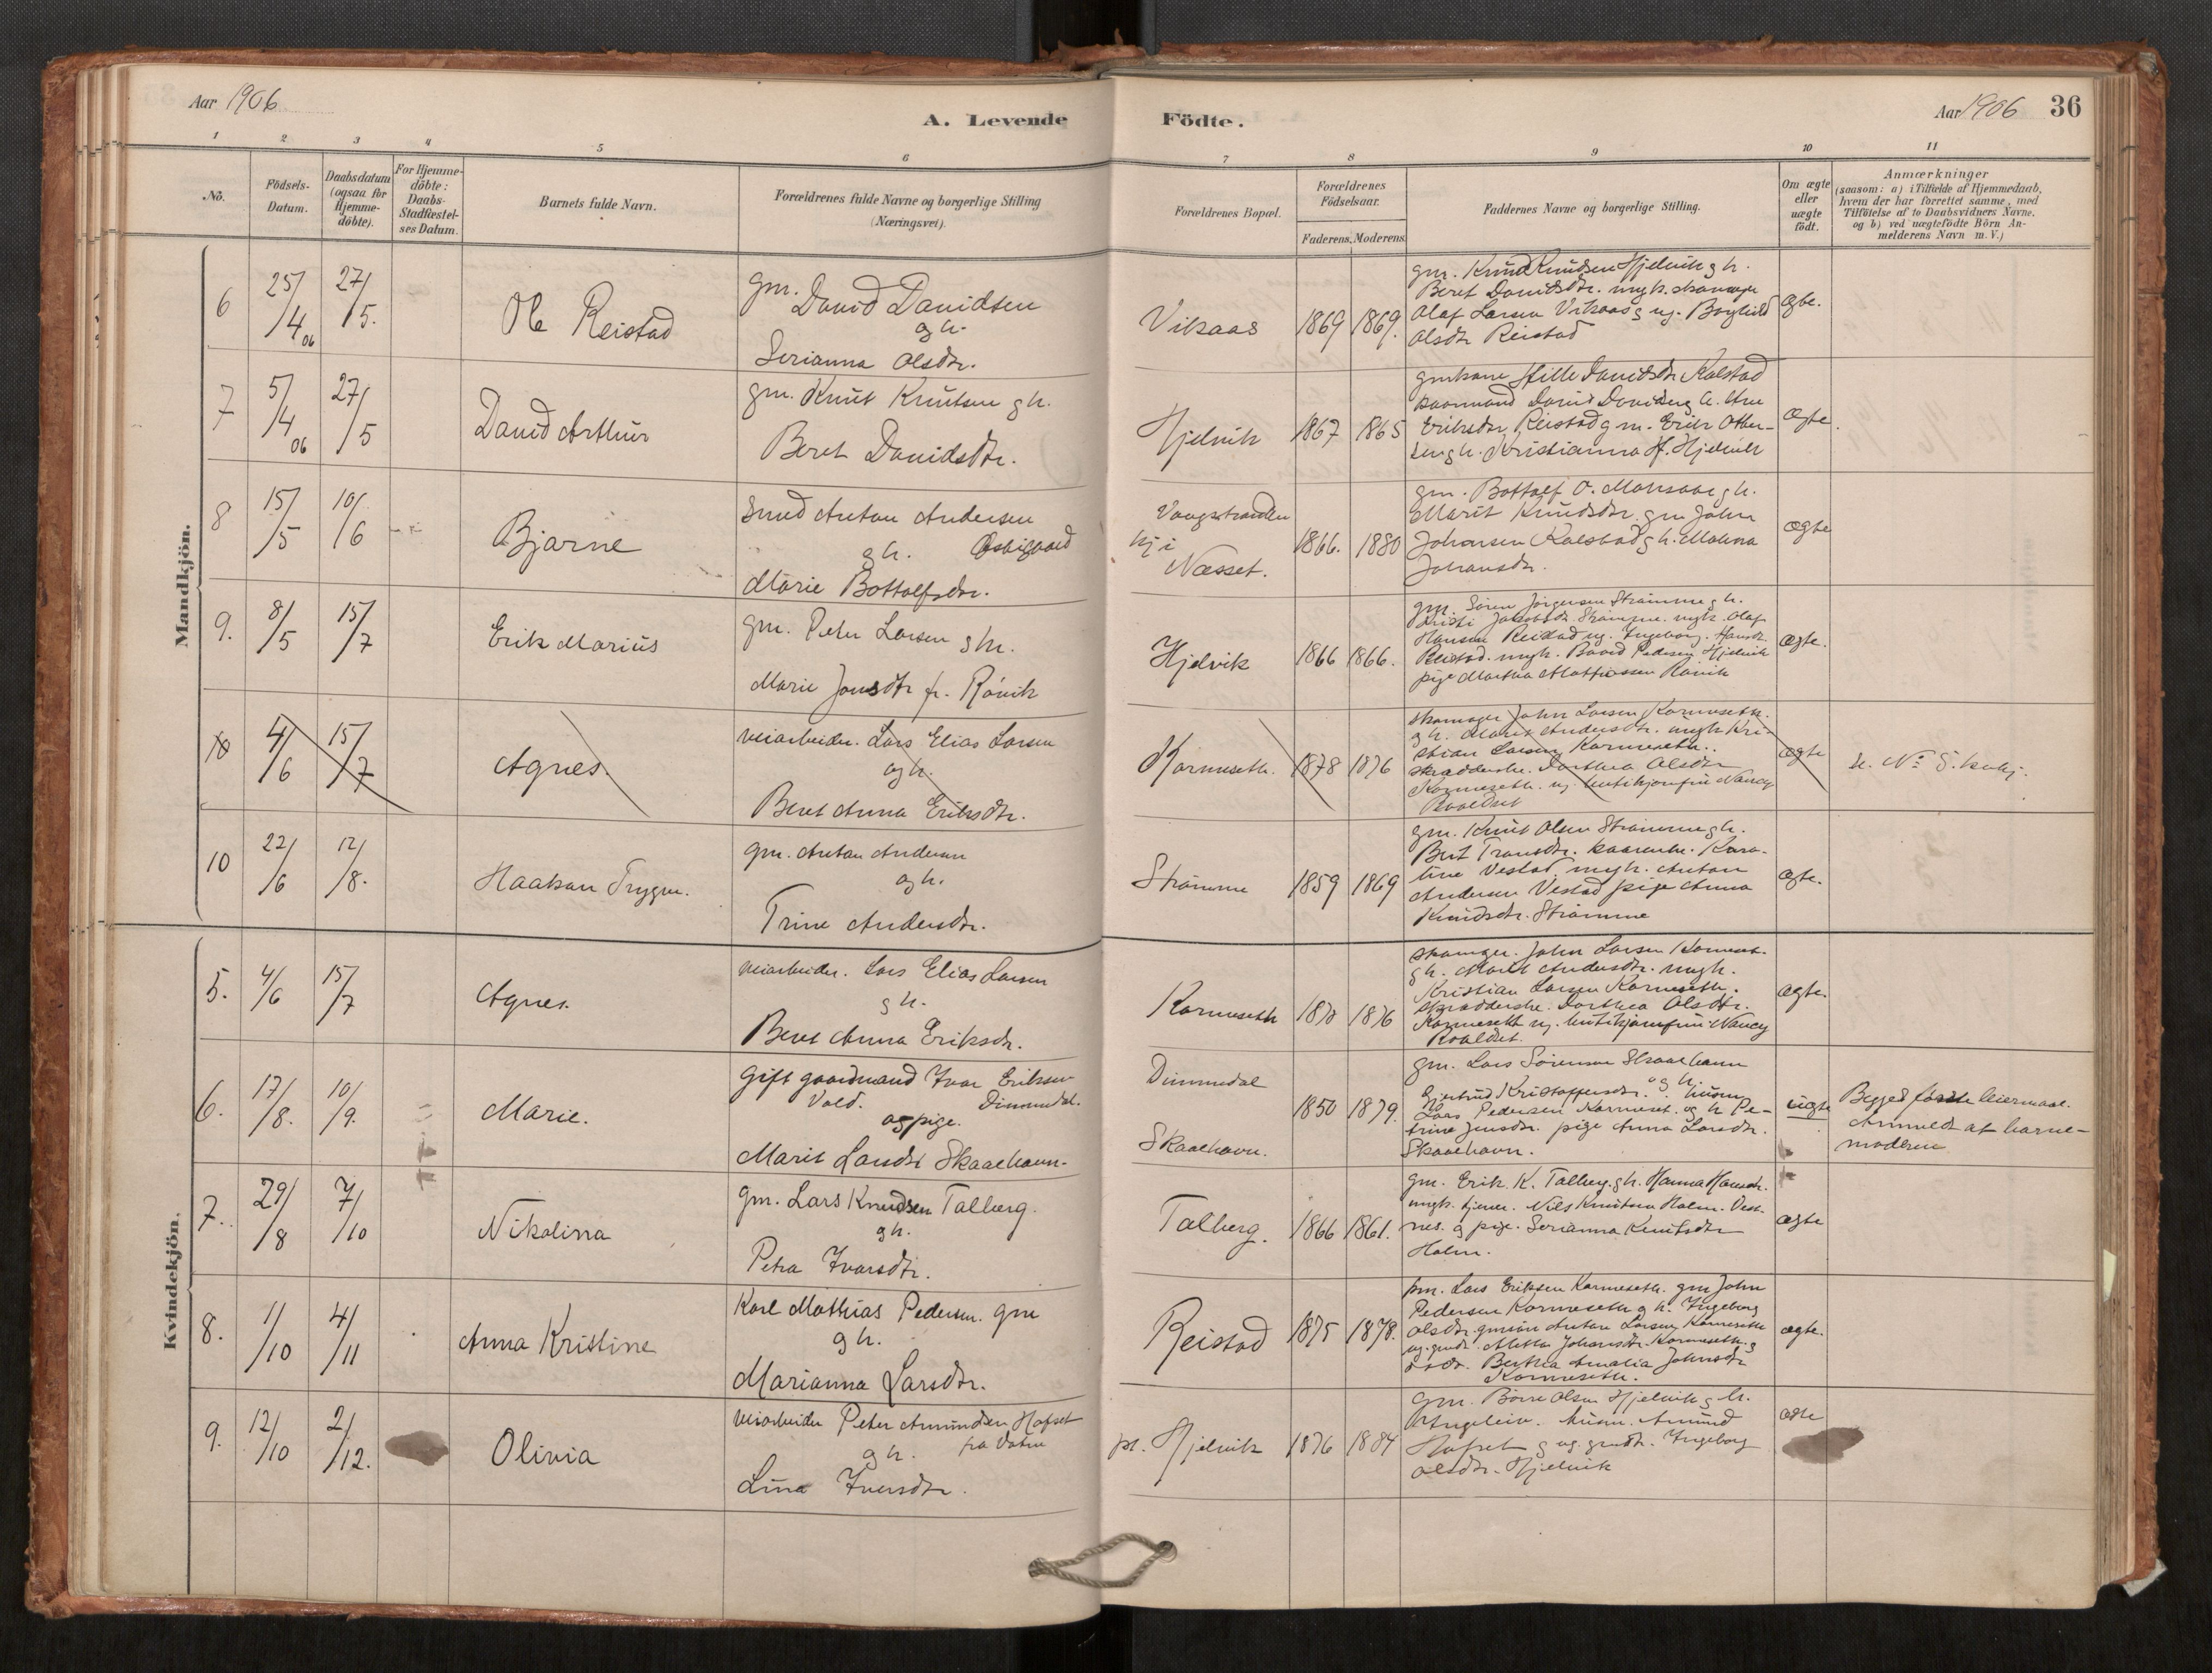 Aar 1906
A. Levende
Födte.
Aar 1906 36
1 2 3 4 5 6 7 8 9 10 11
No.
Födsels-
Datum.
Daabsdatum
(ogsaa for
Hjemme-
döbte).
For Hjemme-
döbte:
Daabs-
Stadfæstel-
ses Datum.
Barnets fulde Navn.
Forældrenes fulde Navne og borgerlige Stilling
(Næringsvei).
Forældrenes Bopæl.
Forældrenes
Födselsaar.
Faderens. Moderens.
Faddernes Navne og borgerlige Stilling.
Om ægte
eller
uægte
födt.
Anmærkninger
(saasom: a) i Tilfælde af Hjemmedaab,
hvem der har forrettet samme, med
Tilföielse af to Daabsvidners Navne,
og b) ved uægtefödte Börn An-
melderens Navn m. V.)
Mandkjön.
6
25/4 06
27/5.
Ole Reistad
gm. David Davidsen
g h.
Serianna Olsdtr.
Vikaas
1869 1869.
gm. Knud Knudsen Hjelvik g h.
Beret Davidsdtr. ungk. skomager
Olaf Larsen Vikaas g ug. Borghild
Olsdtr Reistad
ægte.
7
5/4 06
27/5
David Arthur
gm. Knut Knutsen g h.
Beret Davidsdtr.
Hjelvik
1867 1865
Davidsdtr Kalstad
Eriksdtr Reistad gm. Erik Otter-
sen g h. Kristianna H. Hjelvik
ægte.
8
15/5
10/6
Bjarne
Smed Anton Andersen
g h.
Marie Bottolfsdtr.
Vaagstranden
kj i
Næsset.
1866. 1880
gm. Bottolf O. g h.
Marit Knudsdtr. gm John
Johansen Kalstad g h. Malena
Johansdtr.
ægte
9.
8/5
15/7
Erik Marius
gm. Peter Larsen g h.
Marie Jonsdtr fr. Rövik
Hjelvik
1866 1866.
gm. Sören Jörgensen Strömme g h.
Kristi Jakobsdtr. Strömme. ungk. Olaf
Hansen Reistad ug. Ingeborg Hansdtr.
Reistad. ungk. Pedersen Hjelvik
pige Martha Mathiassen Rövik
ægte.
10
4/6
15/7
Agnes.
Veiarbeider. Lars Elias Larsen
og h.
Beret Anna Eriksdtr.
Kormeseth.
1878 1876
skomager John Larsen Kormeseth.
g h. Marit Andersdtr. ungk Kri-
stian Larsen Kormeseth.
skrædderske. Dorthea Olsdtr
Kormeseth. ug. butikjomfru Nancy
Roaldset
ægte
se. No 5. kvkj.
10
22/6
12/8.
Haakon Trygve.
gm. Anton Andersen
og h.
Trine Andersdtr.
Strömme
1859 1869
gm. Knut Olsen Strömme g h.
Brit Karo-
line Vestad, ungk. Anton
Andersen Vestad pige Anna
Knudsdtr. Strömme
ægte.
Kvindekjön.
5.
4/6
15/7
Agnes.
Veiarbeider. Lars Elias Larsen
g h.
Beret Anna Eriksdtr.
Kormeseth
1878 1876
skomager. John Larsen Kormeset.
g h. Marit Andersdtr. ungk.
Kristian Larsen Kormeseth.
skrædderske. Dorthea Olsdtr.
Kormeseth ug. butikjomfru Nancy
Roaldset.
ægte.
6.
17/8.
10/9.
Marie.
Gift gaardmand Ivar Eriksen
Vold. Dimmedal.
og pige.
Marit Larsdtr Skaalhavn.
Dimmedal
Skaalhavn.
1850 1879.
gm. Lars Sörensen Skaalhavn
Gjertrud Kristoffersdtr. og h. husm
Lars Pedersen Kormeset. og h Pe-
trine Jensdtr. pige Anna Larsdtr.
Skaalhavn.
uægte
Begges förste leiermaal.
Anmeldt af barne-
moderen
7.
29/8
7/10
Nikolina
gm. Lars Knudsen Talberg.
g h.
Petra Ivarsdtr.
Talberg.
1866 1861.
gm. Erik K. Talberg. g h. Hanna Hansdtr.
ungk. tjener. Nils Knutsen Holm. Vest-
nes. g pige. Serianna Knutsdtr
Holm.
ægte
8.
1/10
4/11
Anna Kristine
Karl Mathias Pedersen. gm
g h.
Marianna Larsdtr.
Reistad
1875 1878.
pm. Lars Eriksen Kormeseth. gm John
Pedersen Kormeseth g h. Ingeborg
Olsdtr. gmsön Anton Larsen Kormeseth
ug. gmdtr. Metta Johansdtr. Kormeseth. g
Bertha Amalia Johnsdtr
Kormeseth.
ægte.
9.
12/10
2/12.
Olivia
Veiarbeider Peter Amundsen Hofset
g h. fra Vatne
Lina Iversdtr.
pt. Hjelvik
1876 1884
gm. Börre Olsen Hjelvik g h.
husm. Amund
Hofset g ug. gmdtr. Ingeborg
Olsdtr. Hjelvik
ægte